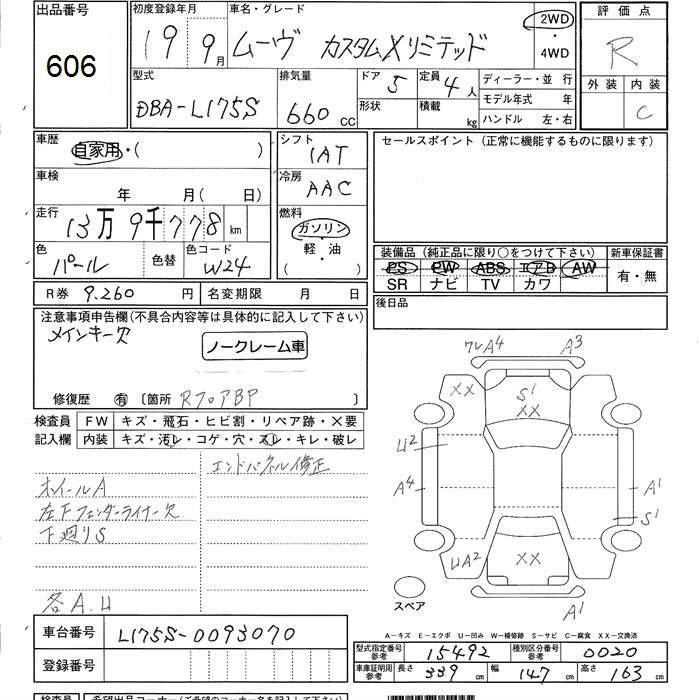 出品番号
606
初度登録年月
19 9月
車名・グレード
ムーヴ カスタムXリミテッド
2WD
・
4WD
評価点
R
外装 内装
C
型式
DBA-L175S
排気量
660 CC
ドア 5
形状
定員 4人
積載 kg
ディーラー・並 行
モデル年式 年
ハンドル 左・右
車歴
自家用・( )
車検
年 月( 日)
走行
13万9千778km
色
パール
色替
色コード
W24
シフト
IAT
冷房
AAC
燃料
ガソリン
・
軽・油
( )
セールスポイント(正常に機能するものに限ります)
装備品(純正品に限り○をつけて下さい)
PS PW ABS エアB AW
SR ナビ TV カワ
新車保証書
有・無
R券 9.260 円
名変期限 月 日
後日品
注意事項申告欄(不具合内容等は具体的に記入して下さい)
メインキー欠
ノークレーム車
修復歴 有 〔箇所 RフロアBP
検査員
記入欄
FW キズ・飛石・ヒビ割・リペア跡・X要
内装 キズ・汚レ・コゲ・穴・スレ・キレ・破レ
エンドパネル修正
ホイールA
左Fフェンダーライナー欠
下廻りS
各A.U
ワレA4 A3
XX
S1
XX
U2
A4
A1
S1
UA2
XX
A1
スペア
A-キズ E-エクボ U-凹み W-補修跡 S-サビ C-腐食 XX-交換済
車台番号 L175S-0093070
登録番号
型式指定番号
参考
15492
種別区分番号
参考
0020
車庫証明用
参考
長さ 339 cm
幅 147 cm
高さ 163 cm